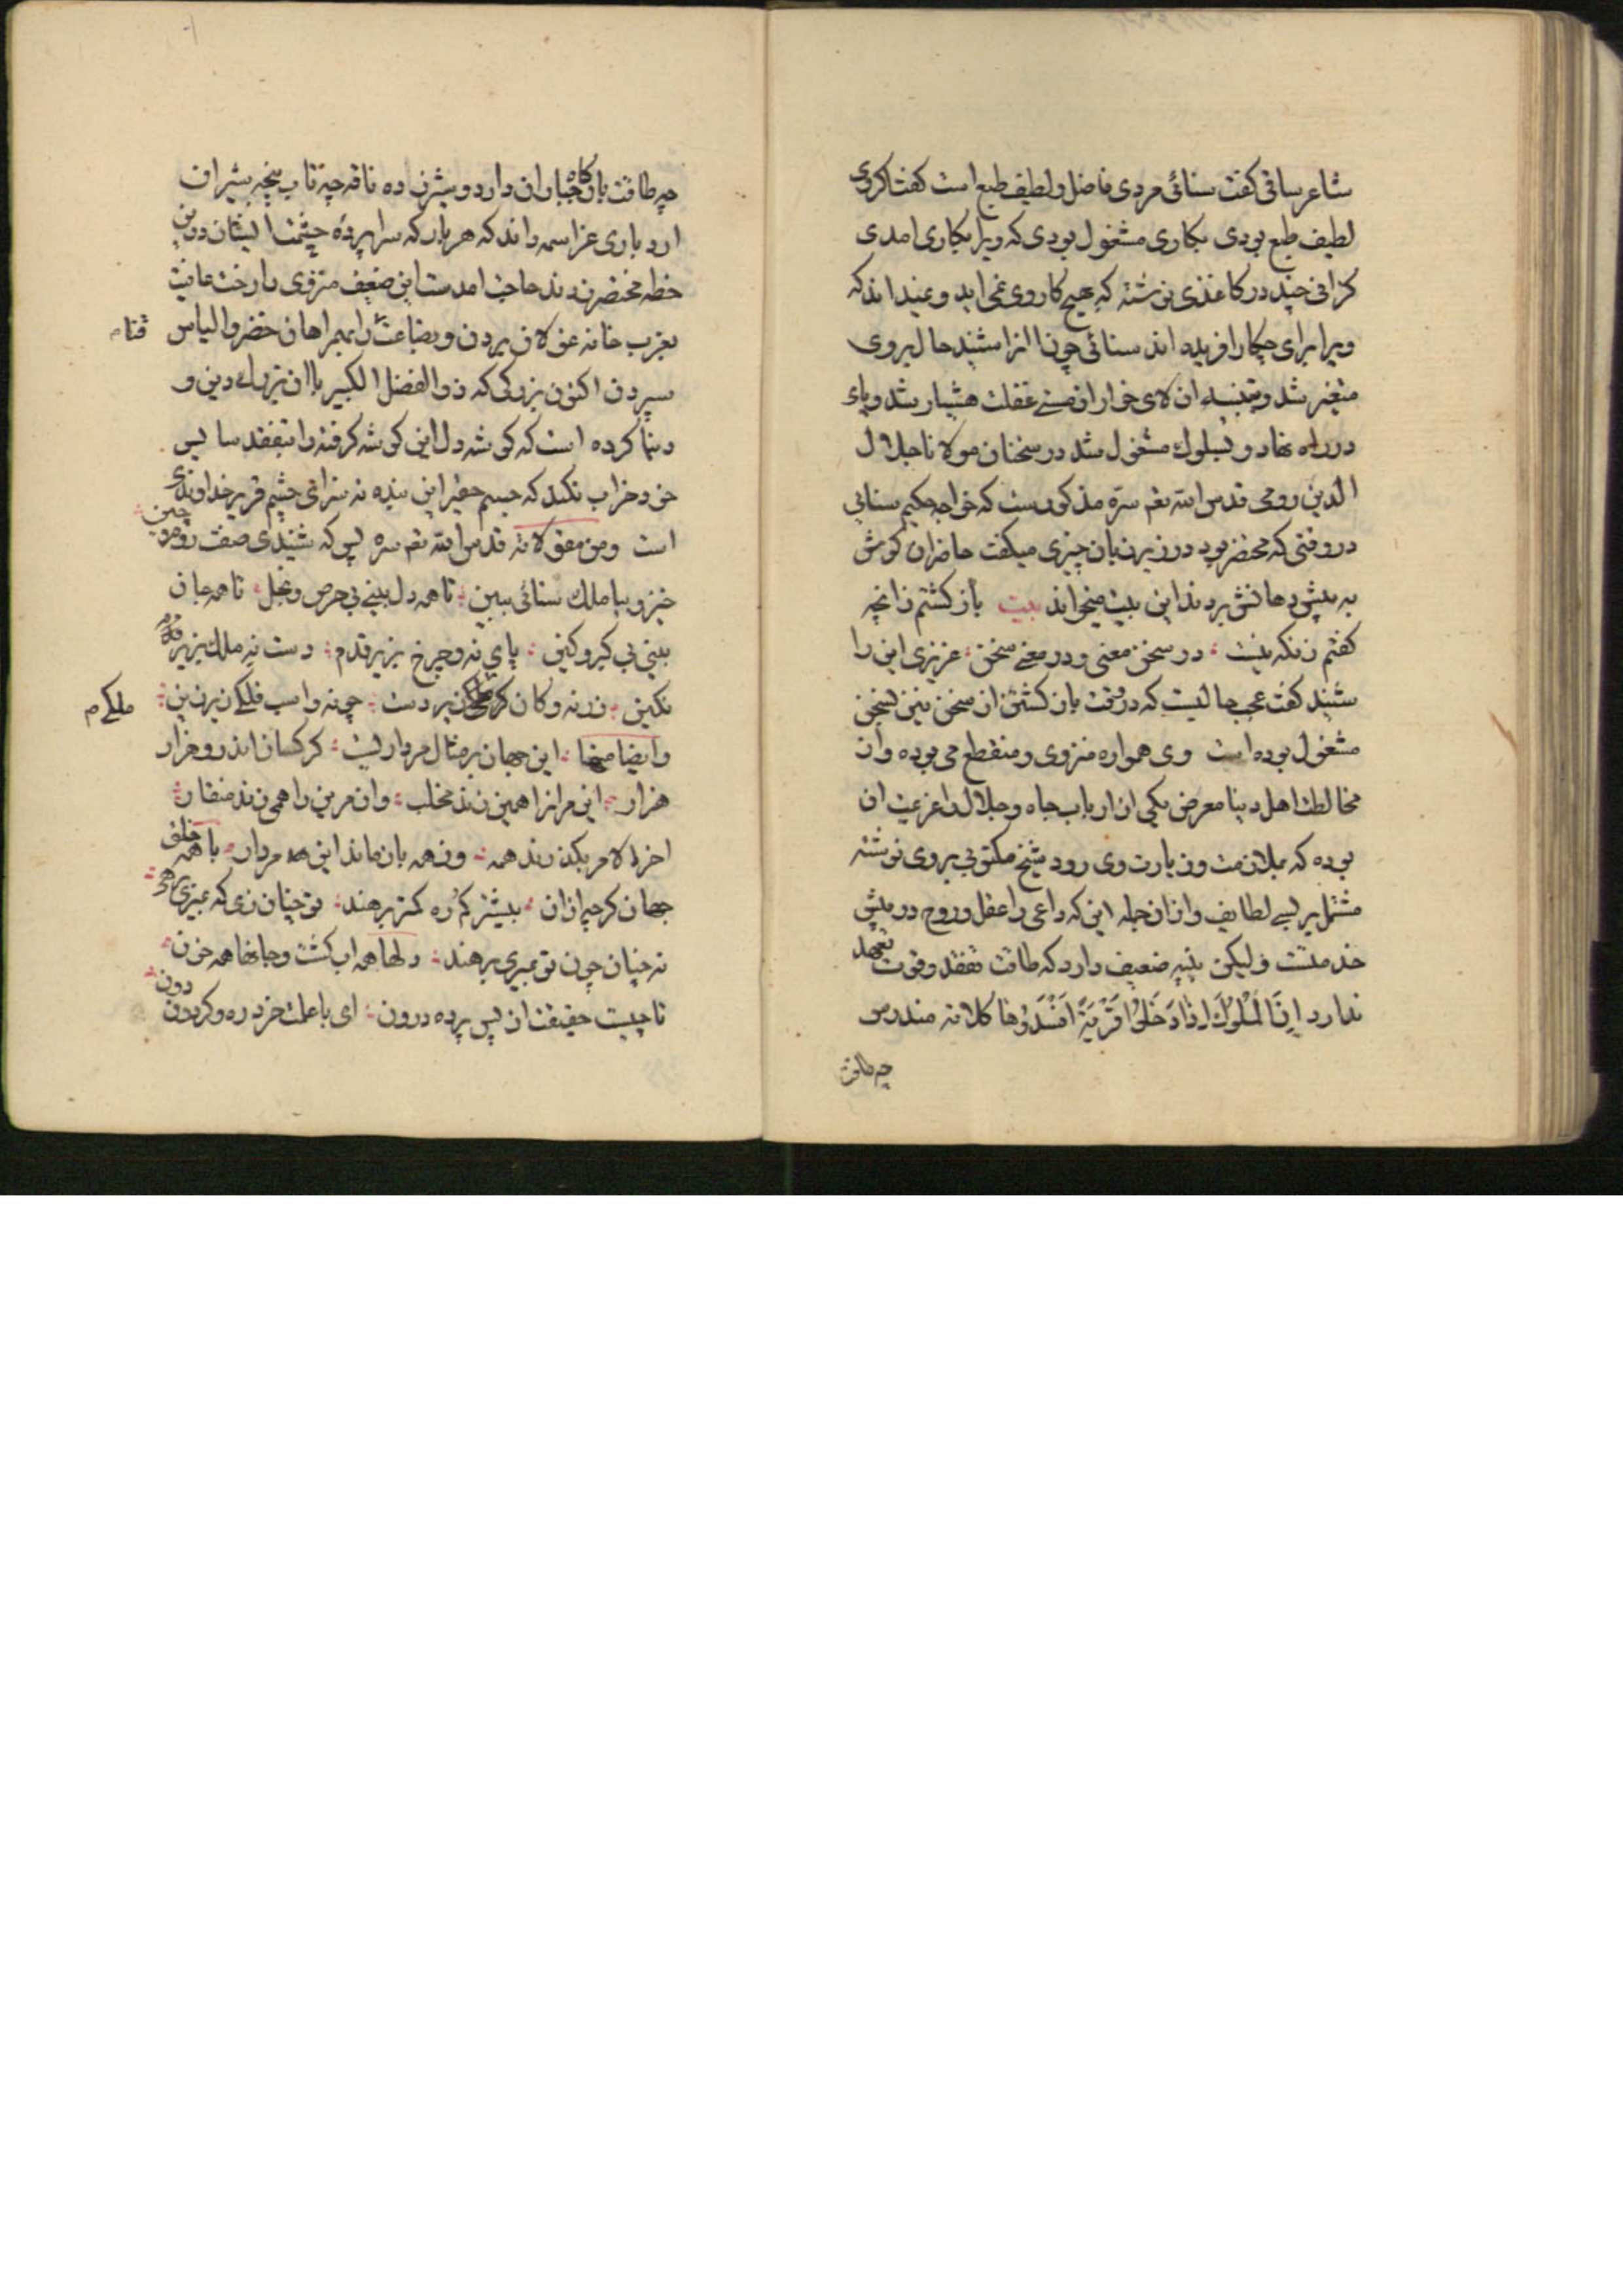 شاعر ساقی کفت سنائی مردی فاضل و لطیف طبع است کفت اکر وی
لطیف طبع بودی بکاری مشغول بودی که ویرا بکاری امدی
کزافی چند در کاغذی نوشته که هیچ کار وی نمی اید و نمیداند که
ویرا برای چکار افریده اند سنائی چون انرا شنید حال بر وی
متغیر شد و بتنبیه ان لای خوار از مستی غفلت هشیار شد و پای
در راه نهاد و بسلوک مشغول شد در سخنان مولانا جلال
الدین رومی قدس الله تعم سره مذکورست که خواجه حکیم سنائی
در وقتی که محتضر بود در زیر زبان چیزی میکفت حاضران کوش
به پیش دهانش بردند این بیت میخواند بیت باز کشتم زانچه
کفتم زنکه نیست در سخن معنی و در معنی سخن عزیزی این را
شنید کفت عجب حالیست که در وقت باز کشتن از سخن نیز بسخن
مشغول بوده است وی همواره منزوی و منقطع می بوده و از
مخالطت اهل دنیا معرض یکی از ارباب جاه و جلال را عزیمت ان
بوده که بملازمت و زیارت وی رود شیخ مکتوبی بر وی نوشته
مشتمل بر بسی لطایف و از ان جمله این که داعی را عقل و روح در پیش
خدمتست ولیکن بنیه ضعیف دارد که طاقت تفقد و قوت تعهد
ندارد اِنَّ الْمُلُوکَ اِذَا دَخَلُوا قَرْیَةً اَفْسَدُوْها کلاته مندرس
چه طاقت
چه طاقت بارکاه جباران دارد و شیرزده ناقه چه تاب پنجه شیران
ارد باری عز اسمه داند که هر بار که سراپرده حشمت ایشان درین
خطه مختصر زدند حاجت امدست این ضعیف منزوی را رخت عافیت
بعزب خانه غولان بردن و بضاعت را بهمراهان خضر و الیاس
قناعت م
سپردن اکنون بزرکی که ذو الفضل الکبیر با ان بزرك دین و
دنیا کرده است که کوشه دل این کوشه کرفته را بتفقد سایس
خود خراب نکند که جسم حقیر این بنده نه سزای چشم قریر خداوندی
است ومن مقولاته قدس الله تعم سره بس که شنیدی صفت روم و چین
خیز و بیا ملك سنائی ببین تا همه دل بینی بی حرص و بخل تا همه جان
بینی بی کبر و کین پای نه و چرخ بزیر قدم دست نه ملك بزیر
نکین زر نه و کان زیر دست جو نه و اسب فلکی زیر زین
ملکی م
وایضا منها این جهان بر مثال مرداریست کرکسان اندرو هزار
هزار این مرانرا همین زند مخلب وان مرین را همی زند منقار
اخر الامر بکذرند همه وز همه باز ماند این مردار با همه خلق
جهان کرچه ازان بیشتر کم ره کمتر برهند تو چنان زی که بمیری برهی
نه چنان چون تو بمیری برهند دلها همه اب کشت و جانها همه خون
تا چیست حقیقت از پس پرده درون ای با علمت خرد ره و کردون دون